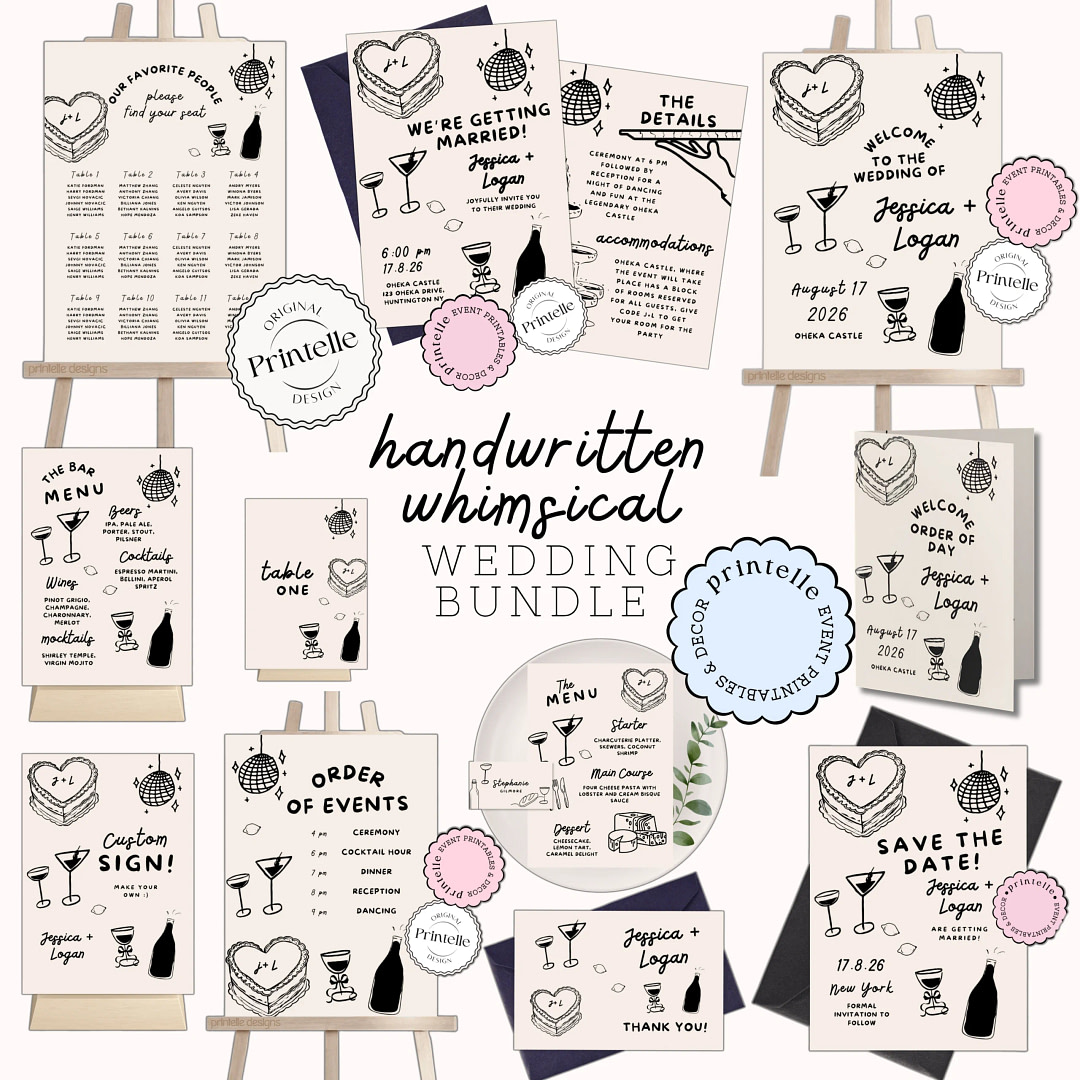 OUR FAVORITE PEOPLE
please
find your seat
J+L
Table 1
KATIE FORDMAN
HARRY FORDMAN
SEVGI NOVACIC
JOHNNY NOVACIC
SAIGE WILLIAMS
HENRY WILLIAMS
Table 2
MATTHEW ZHANG
ANTHONY ZHANG
VICTORIA CHIANG
BILLIANA JONES
BETHANY KALVINS
HOPE MENDOZA
Table 3
CELESTE NGUYEN
AVERY DAVIS
OLIVIA WILSON
KEN NGUYEN
ANGELO GUTTERS
KOA SAMPSON
Table 4
ANDRY MYERS
WINONA BYERS
MARK JAMISON
VICTOR JOHNSON
LISA GERADA
ZEKE HAVEN
Table 5
HARRY FORDMAN
SEVGI NOVACIC
JOHNNY NOVACIC
SAIGE WILLIAMS
HENRY WILLIAMS
Table 6
MATTHEW ZHANG
ANTHONY ZHANG
VICTORIA CHIANG
BILLIANA JONES
BETHANY KALVINS
HOPE MENDOZA
Table 7
CELESTE NGUYEN
AVERY DAVIS
OLIVIA WILSON
KEN NGUYEN
ANGELO GUTTERS
KOA SAMPSON
Table 8
ANDRY MYERS
WINONA BYERS
MARK JAMISON
VICTOR JOHNSON
LISA GERADA
ZEKE HAVEN
Table 9
KATIE FORDMAN
HARRY FORDMAN
SEVGI NOVACIC
JOHNNY NOVACIC
SAIGE WILLIAMS
HENRY WILLIAMS
Table 10
MATTHEW ZHANG
ANTHONY ZHANG
VICTORIA CHIANG
BILLIANA JONES
BETHANY KALVINS
HOPE MENDOZA
Table 11
CELESTE NGUYEN
AVERY DAVIS
OLIVIA WILSON
KEN NGUYEN
ANGELO GUTTERS
KOA SAMPSON
printelle designs
J+L
WE'RE GETTING
MARRIED!
Jessica +
Logan
JOYFULLY INVITE YOU
TO THEIR WEDDING
6:00 pm
17.8.26
OHEKA CASTLE
123 OHEKA DRIVE,
HUNTINGTON NY
THE
DETAILS
CEREMONY AT 6 PM
FOLLOWED BY
RECEPTION FOR A
NIGHT OF DANCING
AND FUN AT THE
LEGENDARY OHEKA
CASTLE
accommodations
OHEKA CASTLE, WHERE
THE EVENT WILL TAKE
PLACE HAS A BLOCK
OF ROOMS RESERVED
FOR ALL GUESTS, GIVE
CODE J+L TO GET
YOUR ROOM FOR THE
PARTY
J+L
WELCOME
TO THE
WEDDING OF
Jessica +
Logan
August 17
2026
OHEKA CASTLE
printelle designs
printelle EVENT PRINTABLES & DECOR
ORIGINAL
Printelle
DESIGN
ORIGINAL
Printelle
DESIGN
printelle EVENT PRINTABLES & DECOR
ORIGINAL
Printelle
DESIGN
handwritten
whimsical
WEDDING
BUNDLE
printelle EVENT PRINTABLES & DECOR
THE BAR
MENU
Beers
IPA, PALE ALE,
PORTER, STOUT,
PILSNER
Cocktails
ESPRESSO MARTINI,
BELLINI, APEROL
SPRITZ
Wines
PINOT GRIGIO,
CHAMPAGNE,
CHARONNARY,
MERLOT
mocktails
SHIRLEY TEMPLE,
VIRGIN MOJITO
table
ONE
J+L
J+L
WELCOME
ORDER OF
DAY
Jessica +
Logan
August 17
2026
OHEKA CASTLE
J+L
Custom
SIGN!
MAKE YOUR
OWN :)
Jessica +
Logan
ORDER
OF EVENTS
4 pm CEREMONY
6 pm COCKTAIL HOUR
7 pm DINNER
8 pm RECEPTION
9 pm DANCING
J+L
printelle designs
printelle EVENT PRINTABLES & DECOR
ORIGINAL
Printelle
DESIGN
The
MENU
J+L
Starter
CHARCUTERIE PLATTER,
SKEWERS, COCONUT
SHRIMP
Main Course
FOUR CHEESE PASTA WITH
LOBSTER AND CREAM BISQUE
SAUCE
Dessert
CHEESECAKE,
LEMON TART,
CARAMEL DELIGHT
Stephanie
GILMORE
Jessica +
Logan
J+L
THANK YOU!
J+L
SAVE THE
DATE!
Jessica +
Logan
ARE GETTING
MARRIED!
17.8.26
New York
FORMAL
INVITATION TO
FOLLOW
printelle EVENT PRINTABLES & DECOR